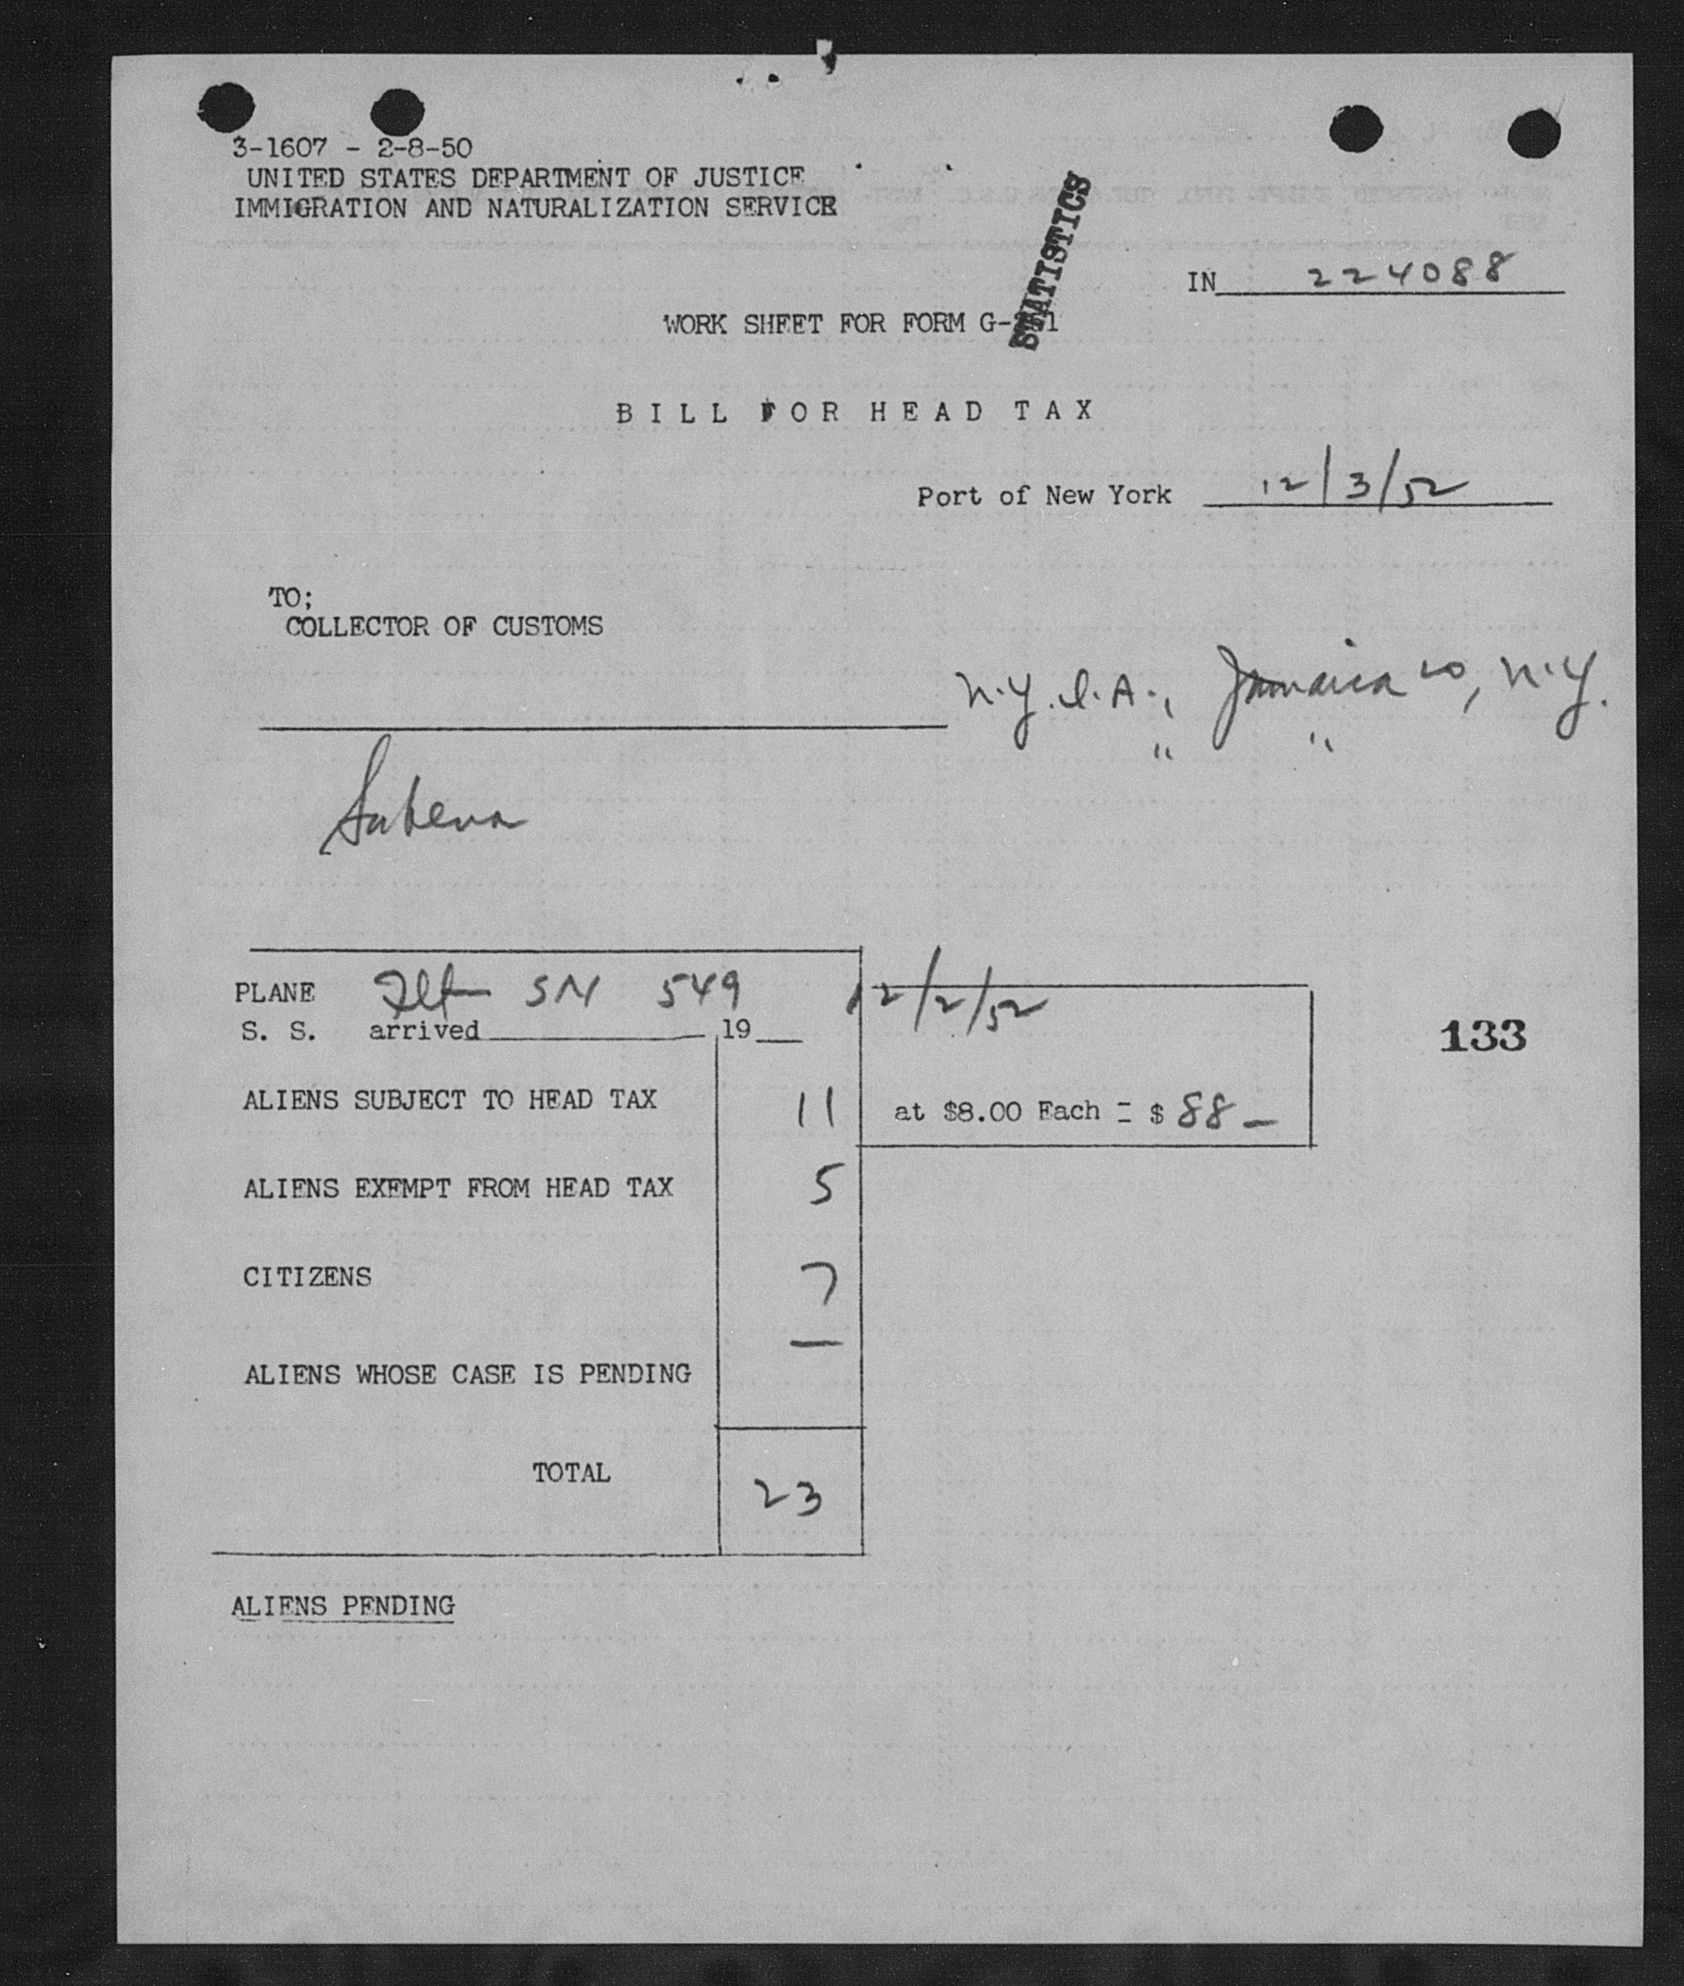 3-1607 - 2-8-50
UNITED STATES DEPARTMENT OF JUSTICE
IMMIGRATION AND NATURALIZATION SERVICE
STATISTICS
IN 224088
WORK SHEET FOR FORM
BILL FOR HEAD TAX
Port of New York 12/3/52
TO;
COLLECTOR OF CUSTOMS
N.Y.I.A., Jamaica 20, N.Y.
" "
Sabena
PLANE Flt SN 549 12/2/52
S. S. arrived 19
133
ALIENS SUBJECT TO HEAD TAX 11 at $8.00 Each = $ 88 —
ALIENS EXEMPT FROM HEAD TAX 5
CITIZENS 7
—
ALIENS WHOSE CASE IS PENDING
TOTAL 23
ALIENS PENDING